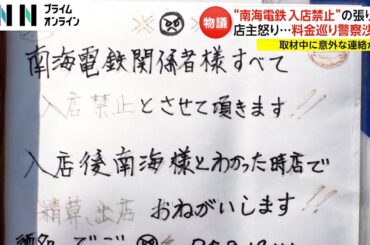 プライム
オンライン
物議
"南海電鉄 入店禁止"の張り
店主怒り…料金巡り警察沙
取材中に意外な連絡が
南海電鉄関係者様すべて
入店禁止とさせて頂きます!!
入店後南海様とわかった時店で
精算、出店 おねがいします!!